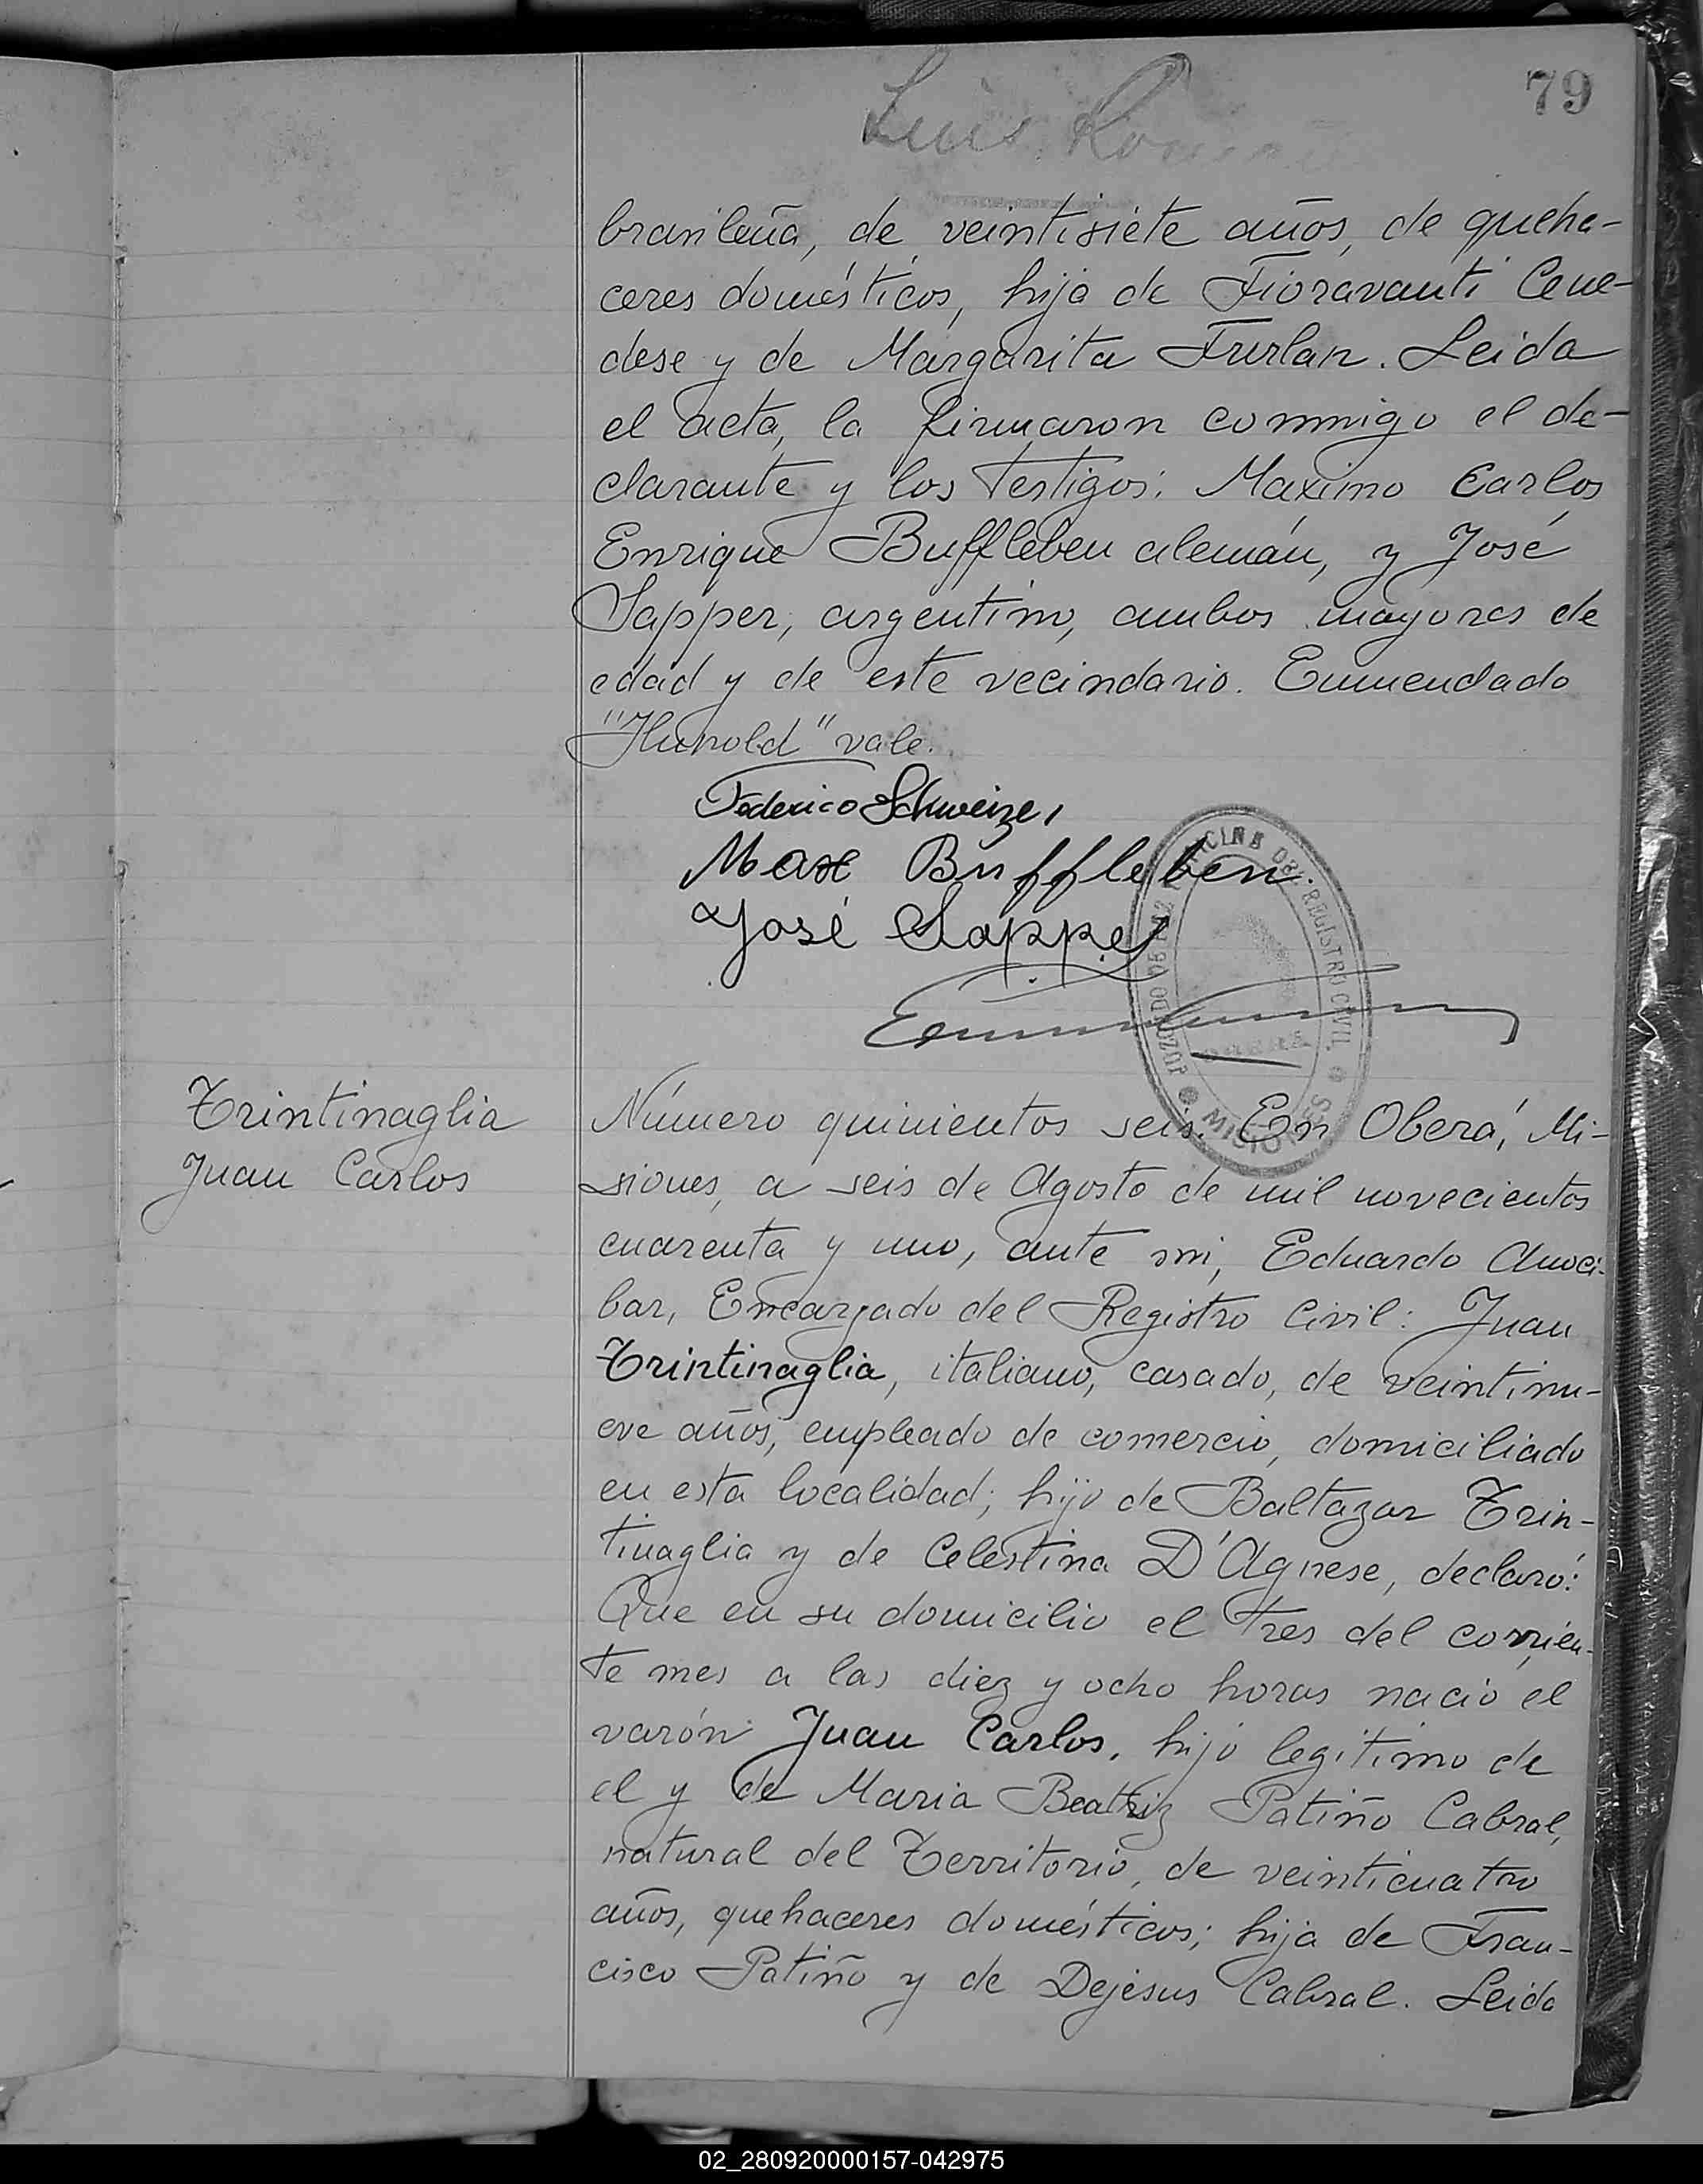 79
Luis
brasileña, de veintisiete años, de queha-
ceres domésticos, hija de Fioravanti Cene-
dese y de Margarita Furlan. Leida
el acta, la firmaron commigo el de-
clarante y los testigos: Maximo Carlos
Enrique Buffleben alemán, y José
Sapper, argentino, ambos mayores de
edad y de este vecindario. Enmendado
"Hunold" vale.
Federico Schweizer
Max Buffleben.
José Sapper
JUZGADO DE PAZ OFICINA DEL REGISTRO CIVIL
MISIONES
Trintinaglia
Juan Carlos
Número quinientos seis. En Oberá, Mi-
siones, a seis de Agosto de mil novecientos
cuarenta y uno, ante mi, Eduardo Anoci-
bar, Encargado del Registro Civil: Juan
Trintinaglia, italiano, casado, de veintinu-
eve años, empleado de comercio, domiciliado
en esta localidad; hijo de Baltazar Trin-
tinaglia y de Celestina D'Agnese, declaró:
Que en su domicilio el tres del corrien-
te mes a las diez y ocho horas nació el
varón Juan Carlos, hijo legitimo de
el y de Maria Beatriz Patiño Cabral,
natural del Territorio, de veinticuatro
años, quehaceres domésticos; hija de Fran-
cisco Patiño y de Dejesus Cabral. Leida
02_280920000157-042975